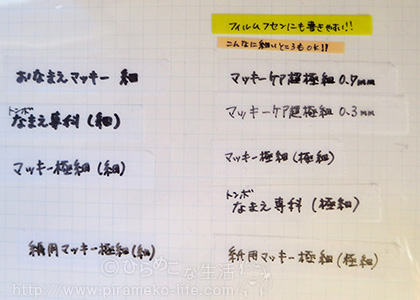 おなまえマッキー 細
トンボ
なまえ専科(細)
マッキー極細(細)
紙用マッキー極細(細)
フィルムフセンにも書きやすい!!
こんなに細いところもOK!!
マッキーケア超極細0.7mm
マッキーケア超極細0.3mm
マッキー極細(極細)
トンボ
なまえ専科(極細)
紙用マッキー極細(極細)
©ぴらめこな生活
http://www.pirameko-life.com/